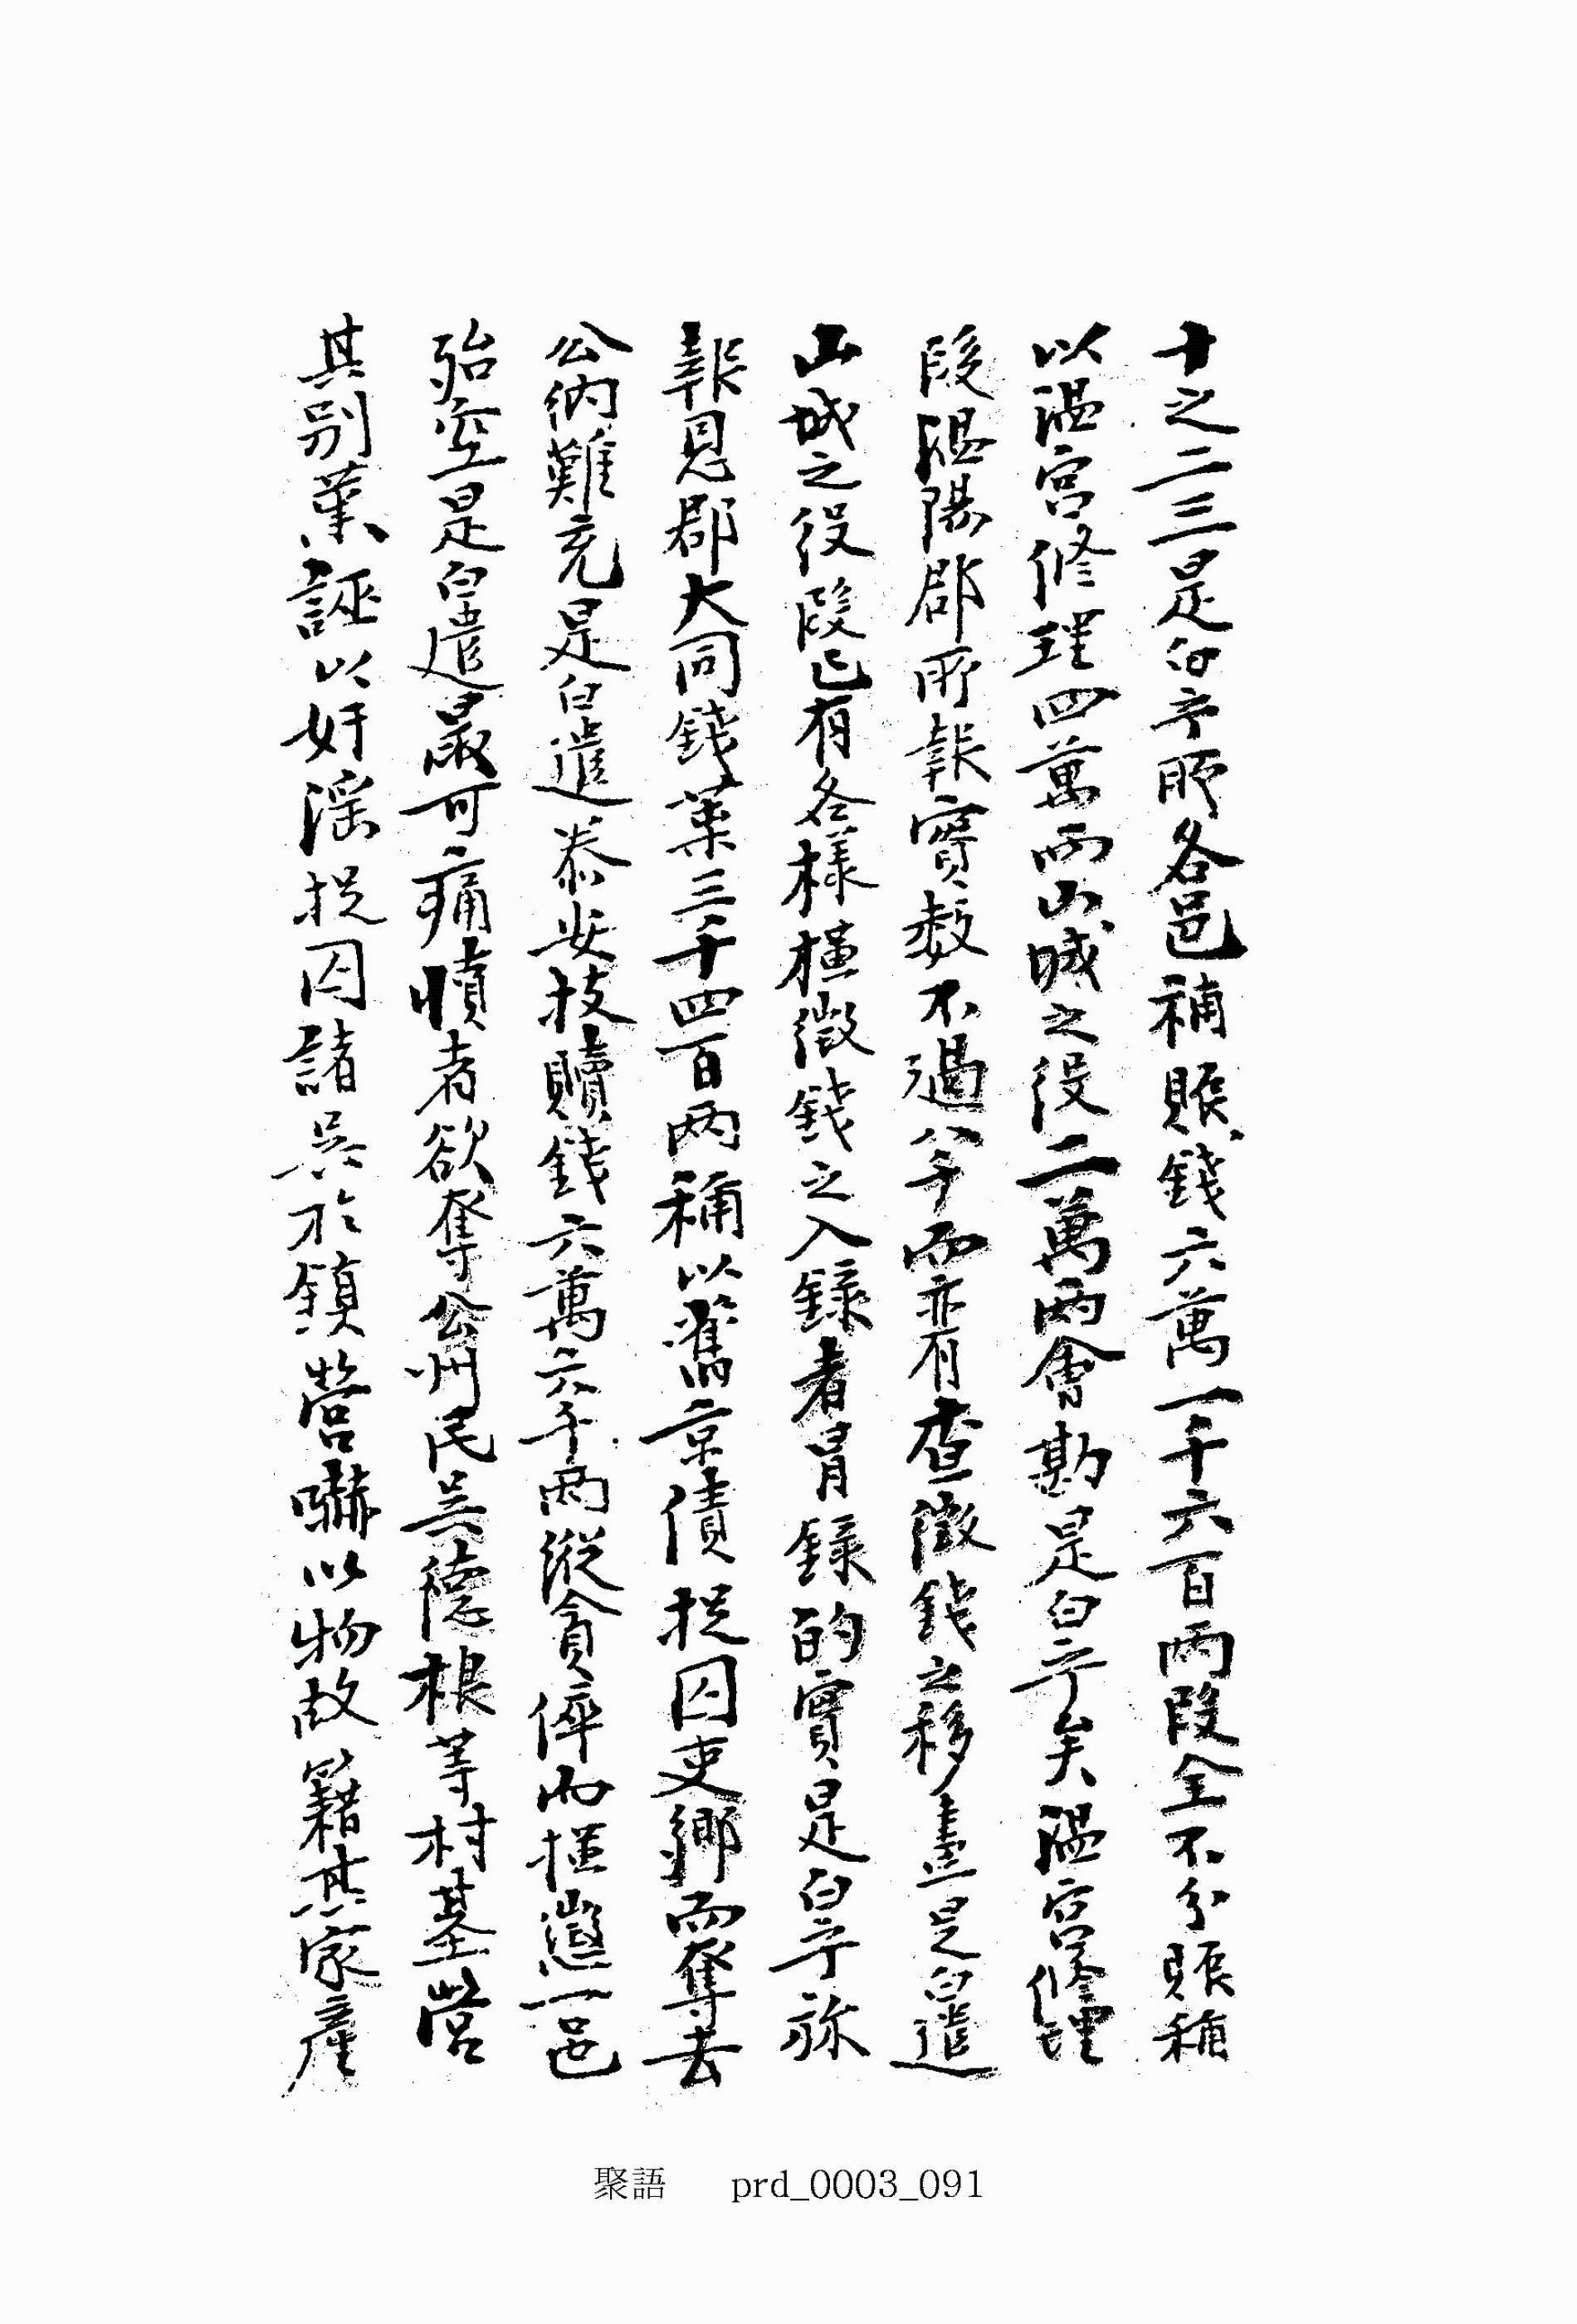 十之二三是白乎所各邑補賑錢六萬一千六百兩段全不分賑稱
以溫宮修理四萬兩山城之役二萬兩會勘是白乎矣溫宮修理
段溫陽郡所報實數不過八千兩亦有查徵錢之移畫是白遣
山城之役段已有各樣橫徵錢之入錄者冒錄的實是白乎旀
報恩郡大同錢葉三千四百兩稱以舊京債捉囚吏鄉而奪去
公納難充是白遣泰安技贖錢六萬六千兩縱貪倅而橫逋一邑
殆空是白遣最可痛憤者欲奪公州民吳德根等村基營
其別業誣以奸淫捉囚諸吳於鎮營嚇以物故籍其家產
聚語 prd_0003_091